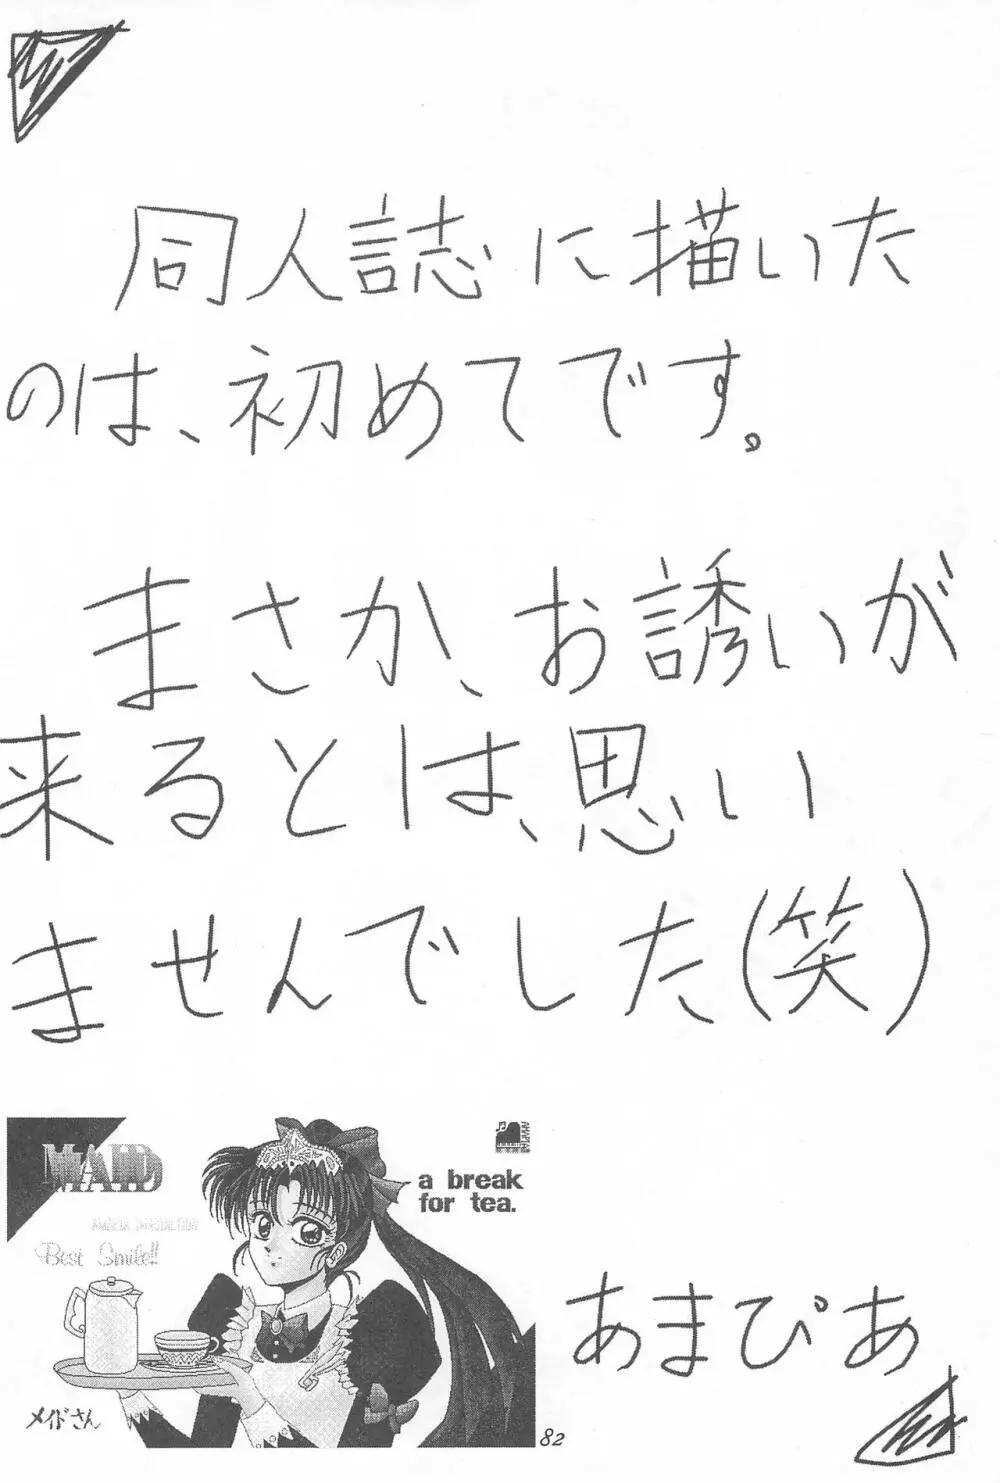 同人誌に描いた
のは、初めてです。
まさか、お誘いが
来るとは、思い
ませんでした(笑)
MAID
a break
for tea.
Best Smile!!
メイドさん
あまぴあ
82